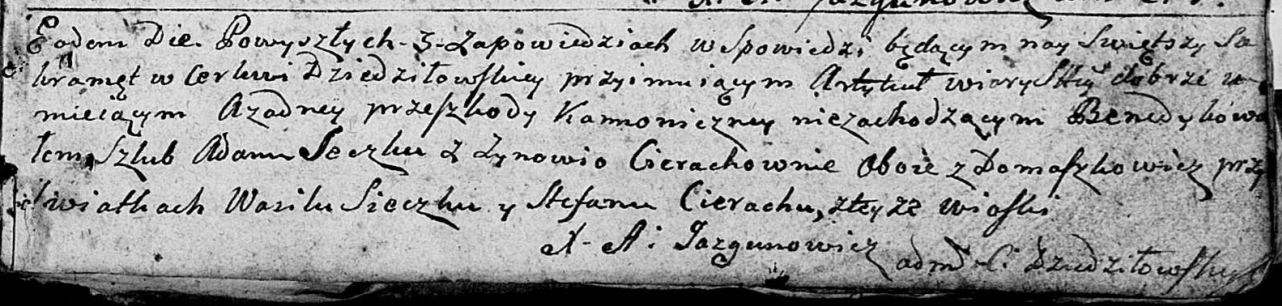 Jazgunowicz
Eadem Die. Powyszłych - 3 - Zapowiedziach w Spowiedzi będącym nay Swiętszy Sa
kramęt w Cerkwi Dziedziłowskiey przyimuiącym Artykuł wiary Stey dobrze u
mieiącym A zadney przeszkody Kannoniczney niezachodzącym Benedykowa
łem Szlub Adamu Seczku z Zynowio Cierachownie Oboie z Domaszkowicz przy
Swiatkach Wasilu Sieczku y Stefanu Cierachu, ztey ze wioski
X - A: Jazgunowicz adm C: Dziedziłowsky